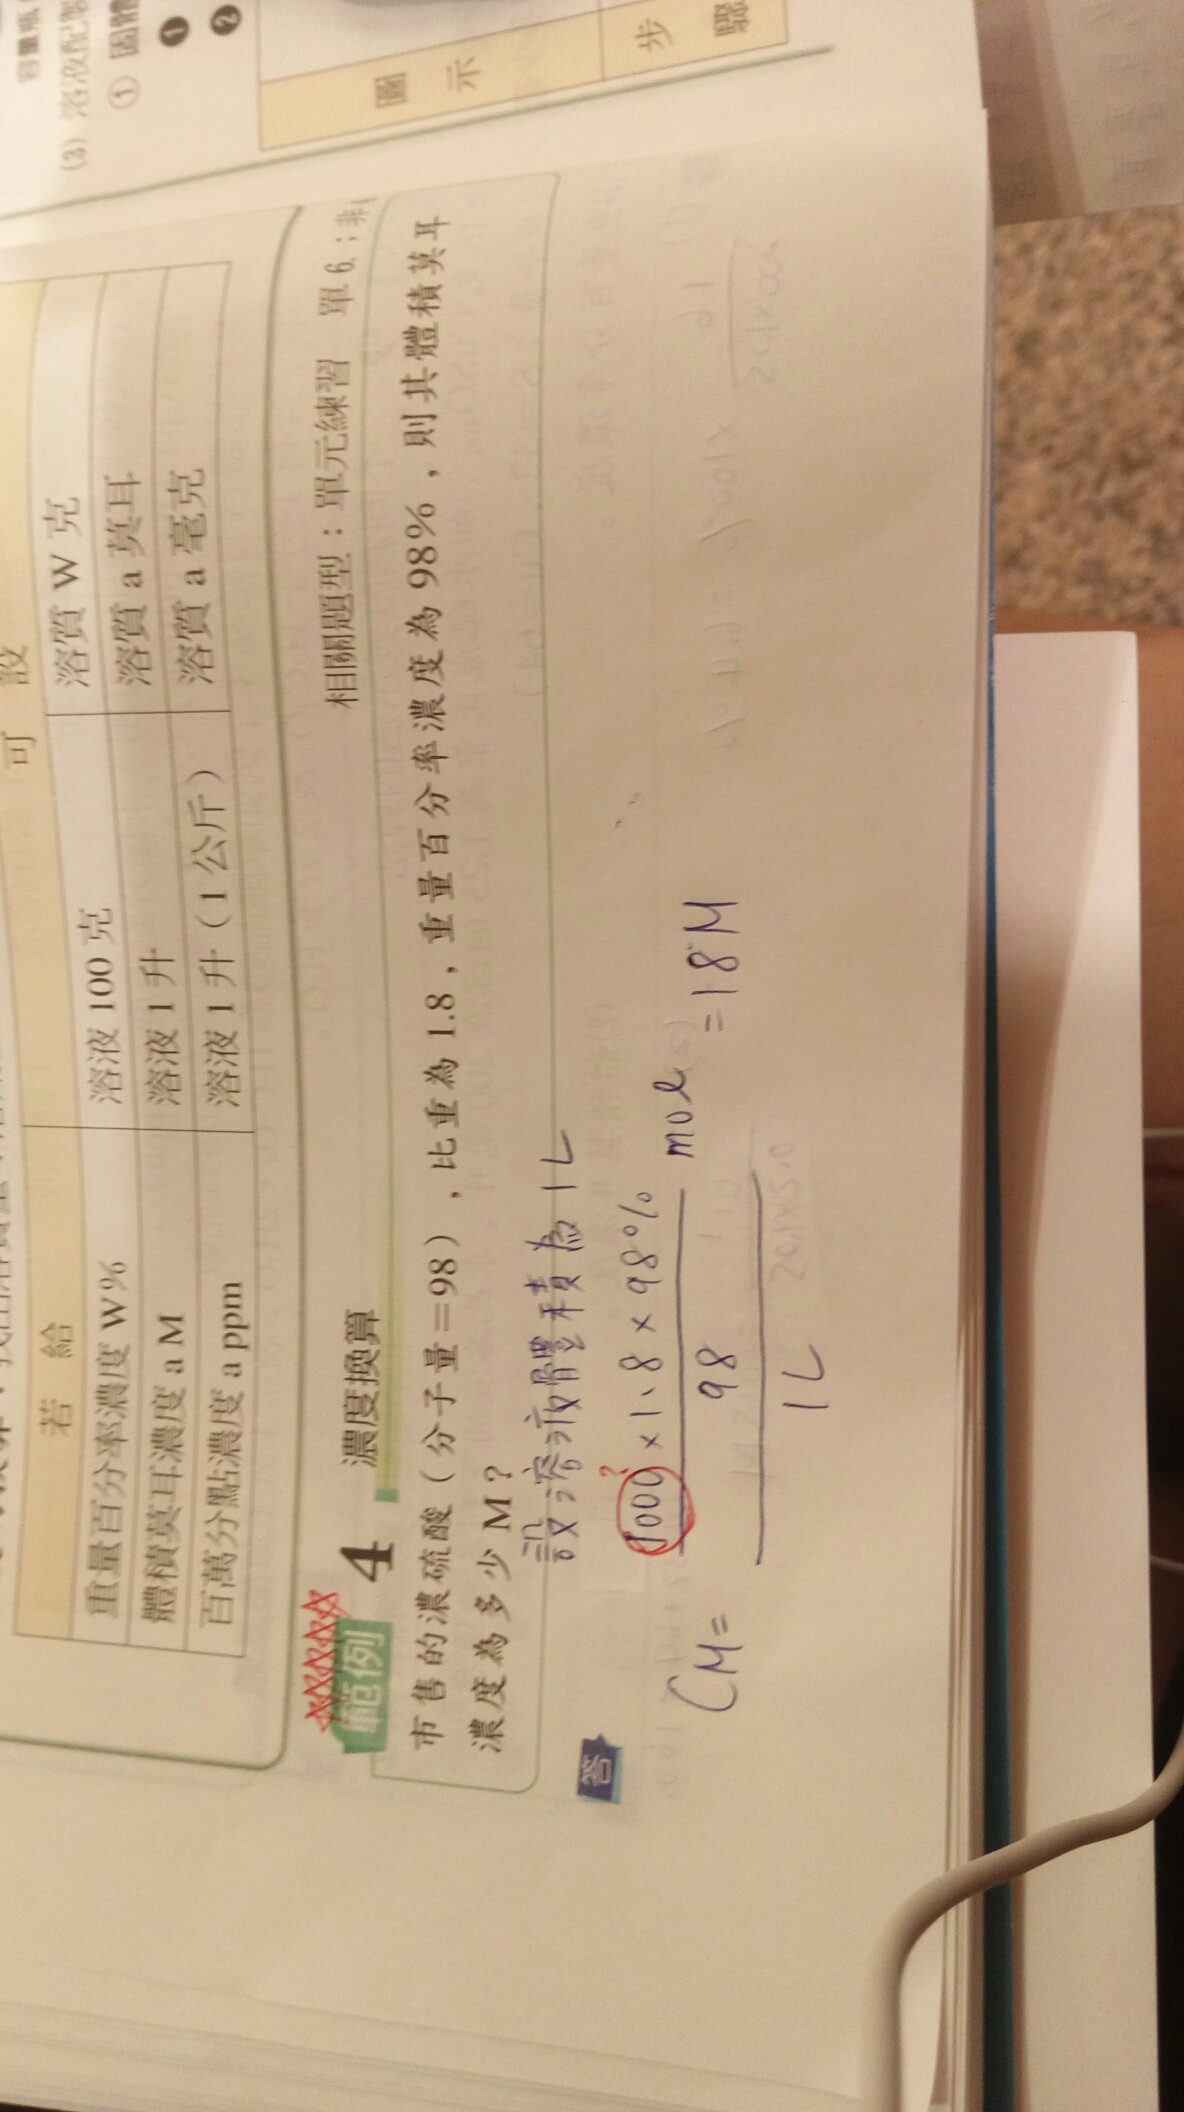 容量瓶
(3) 溶液配製
① 固體
❶
❷
圖示
步驟
若給
可設
重量百分率濃度 W%
溶液 100 克
溶質 W 克
體積莫耳濃度 a M
溶液 1 升
溶質 a 莫耳
百萬分點濃度 a ppm
溶液 1 升(1 公斤)
溶質 a 毫克
範例 4 濃度換算
相關題型:單元練習 單 6.;非
市售的濃硫酸(分子量=98),比重為 1.8,重量百分率濃度為 98%,則其體積莫耳
濃度為多少 M?
答
設溶液體積為 1L
?
CM= 1000×1.8×98% mol =18M
98
1L